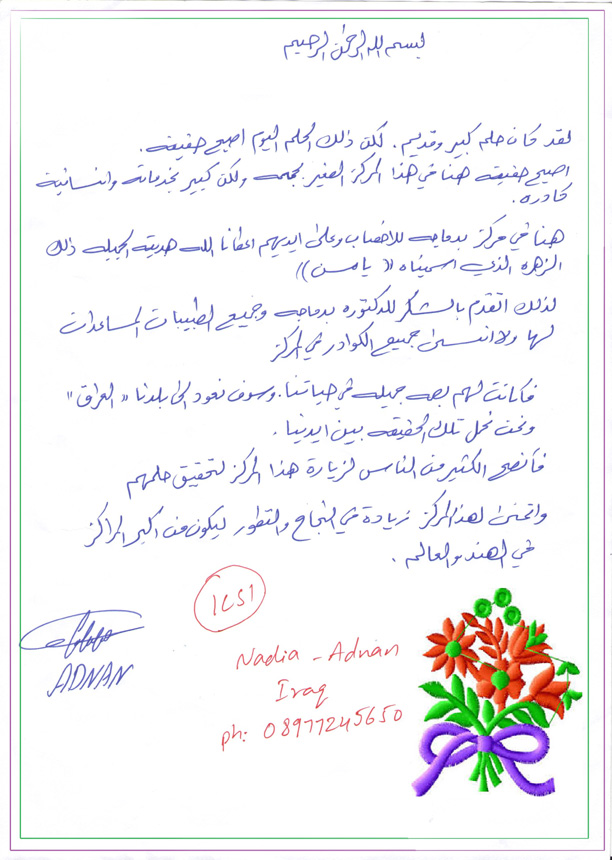 بسم الله الرحمن الرحيم
لقد كان حلم كبير وقديم. لكن ذلك الحلم اليوم اصبح حقيقه.
اصبح حقيقه هنا في هذا المركز الصغير بحجمه ولكن كبير بخدماته وانسانية
كادره.
هنا في مركز بدماجه للاخصاب وعلى ايديهم اعطانا الله هديته الجميله ذلك
الزهره الذي اسميناه ((ياسمن))
لذلك اتقدم بالشكر للدكتوره بدماجه وجميع الطبيبات المساعدات
لها ولا انسى جميع الكوادر في المركز
فكانت لهم بصمه جميله في حياتنا. وسوف نعود الى بلدنا "العراق"
ونحن نحمل تلك الحقيقه بين ايدينا.
فأنصح الكثير من الناس لزيارة هذا المركز لتحقيق حلمهم
واتمنى لهذا المركز زيادة في النجاح والتطور ليكون من اكبر المراكز
في الهند والعالم.
ICSI
ADNAN
Nadia - Adnan
Iraq
ph: 08977245650